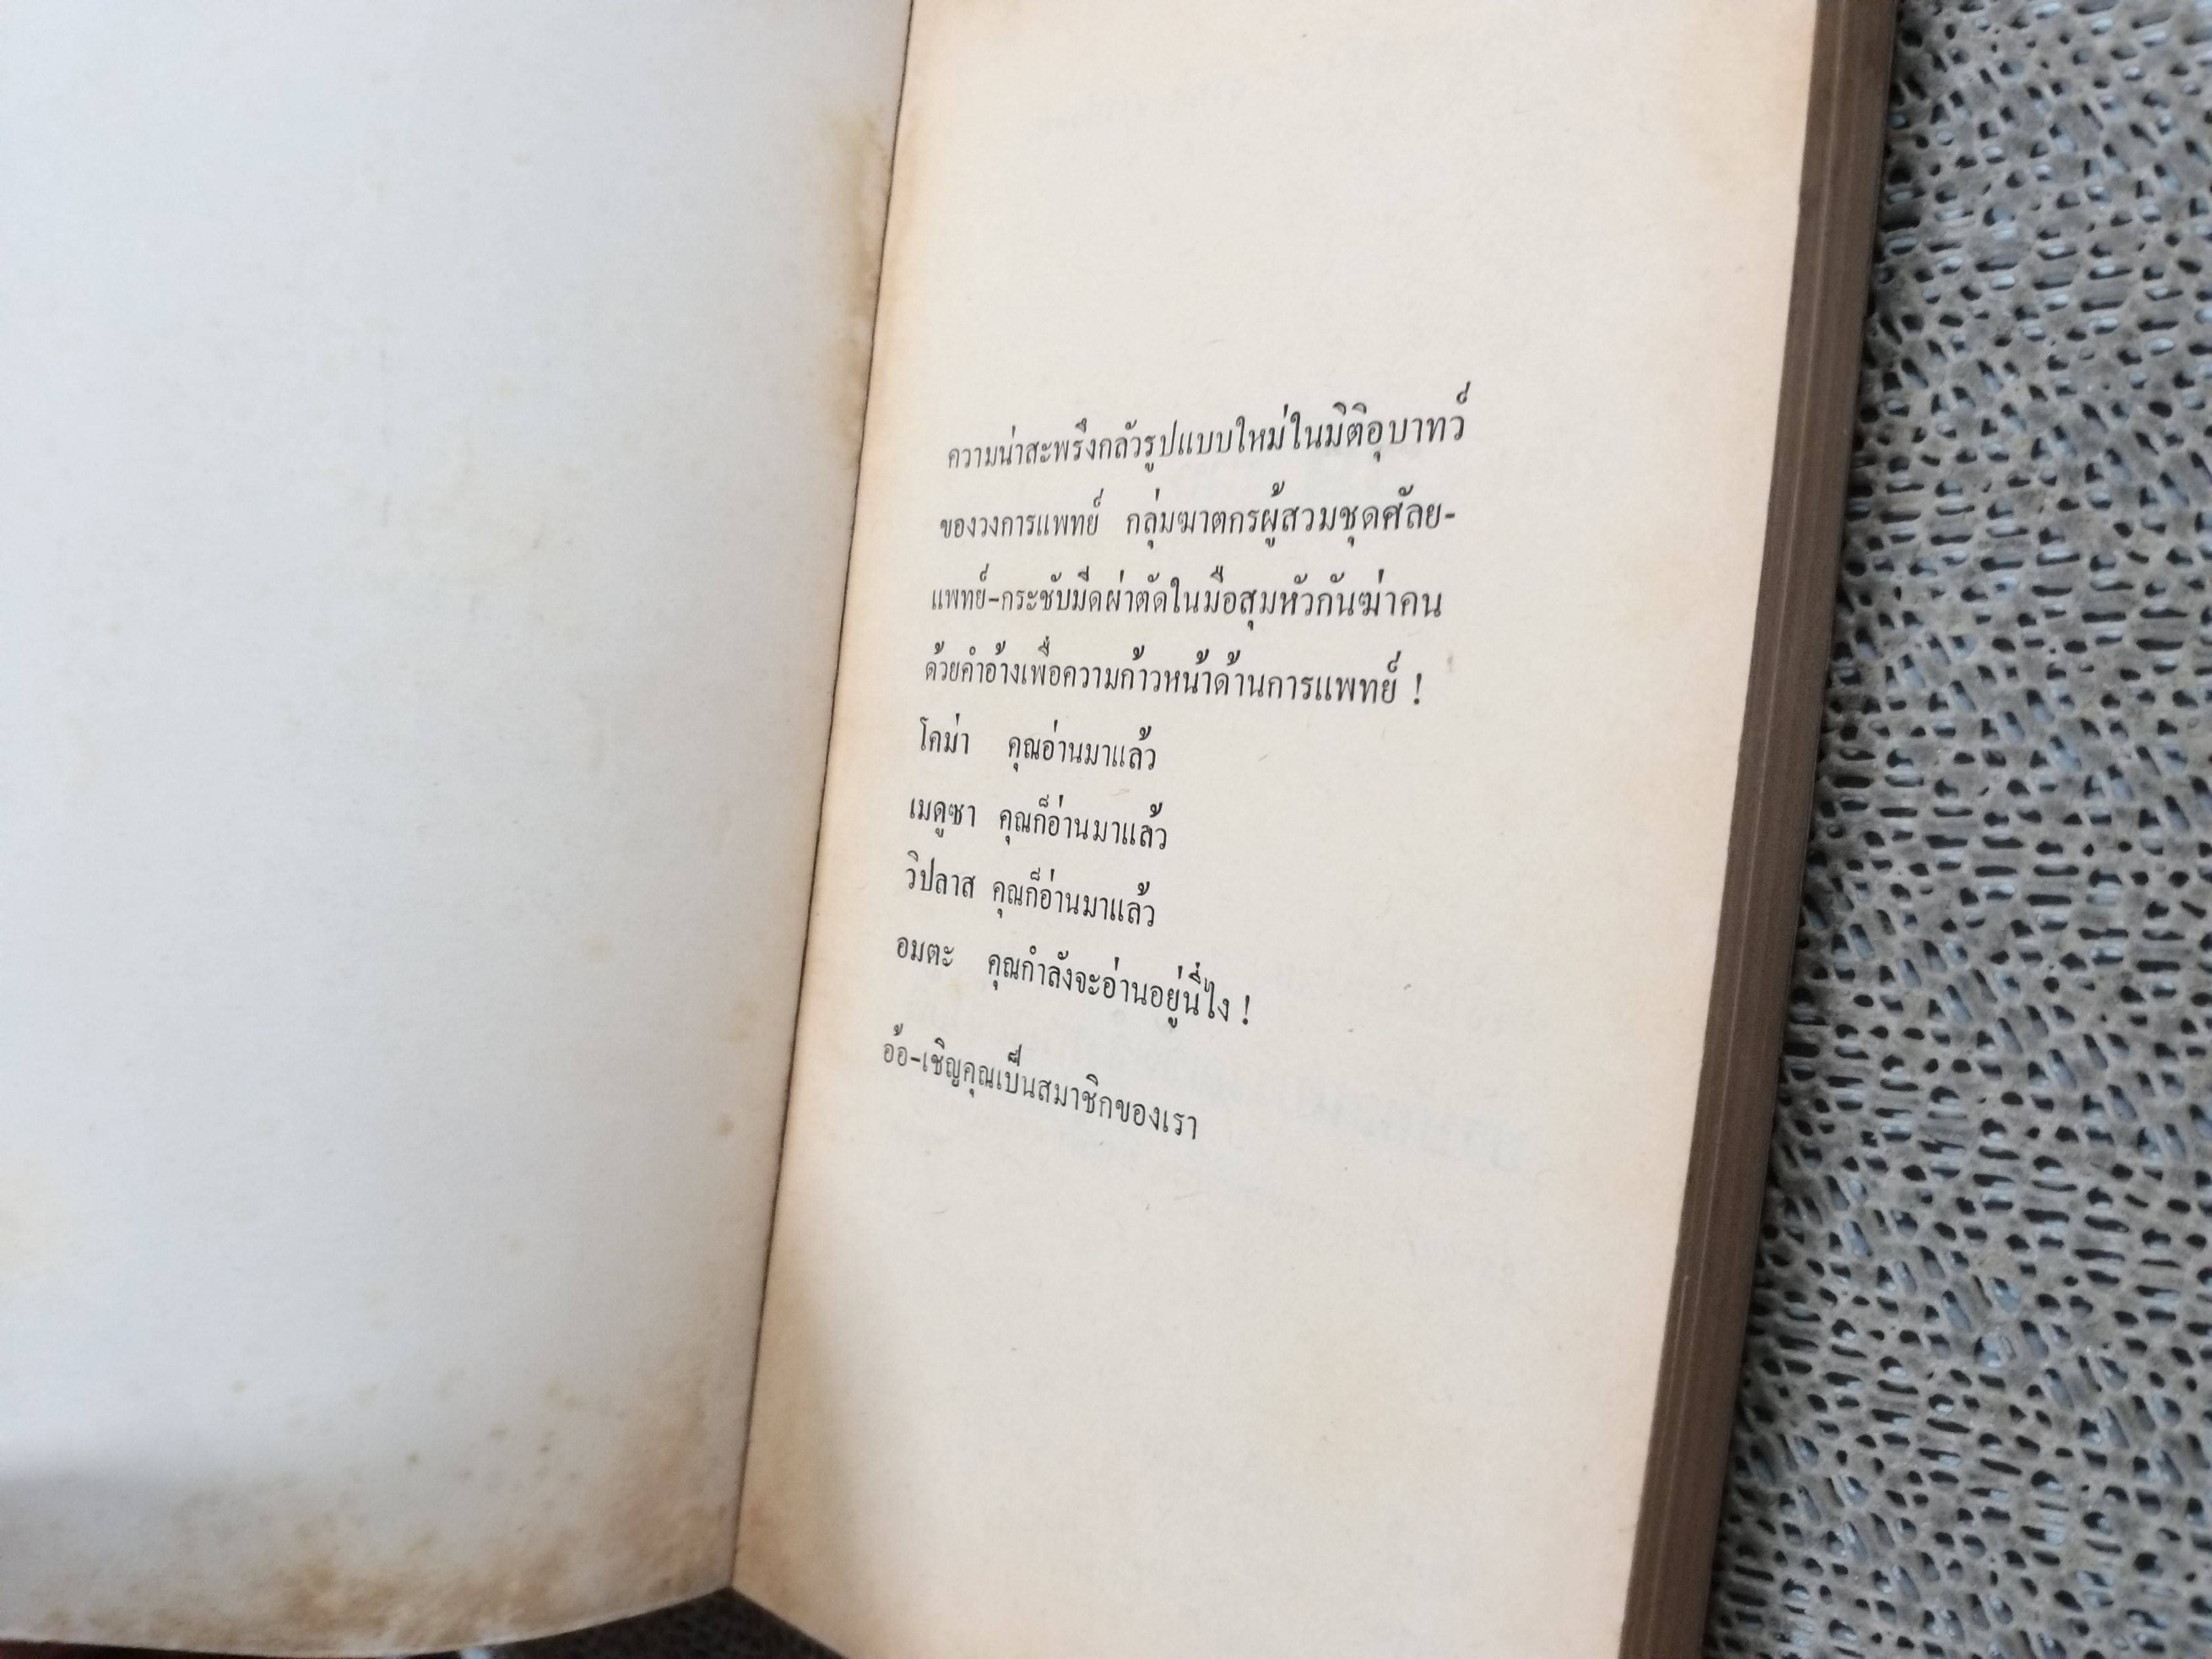 ความน่าสะพรึงกลัวรูปแบบใหม่ในมิติอุบาทว์
ของวงการแพทย์ กลุ่มฆาตกรผู้สวมชุดศัลย-
แพทย์-กระชับมีดผ่าตัดในมือสุมหัวกันฆ่าคน
ด้วยคำอ้างเพื่อความก้าวหน้าด้านการแพทย์ !
โคม่า คุณอ่านมาแล้ว
เมดูซา คุณก็อ่านมาแล้ว
วิปลาส คุณก็อ่านมาแล้ว
อมตะ คุณกำลังจะอ่านอยู่นี่ไง !
อ้อ-เชิญคุณเป็นสมาชิกของเรา